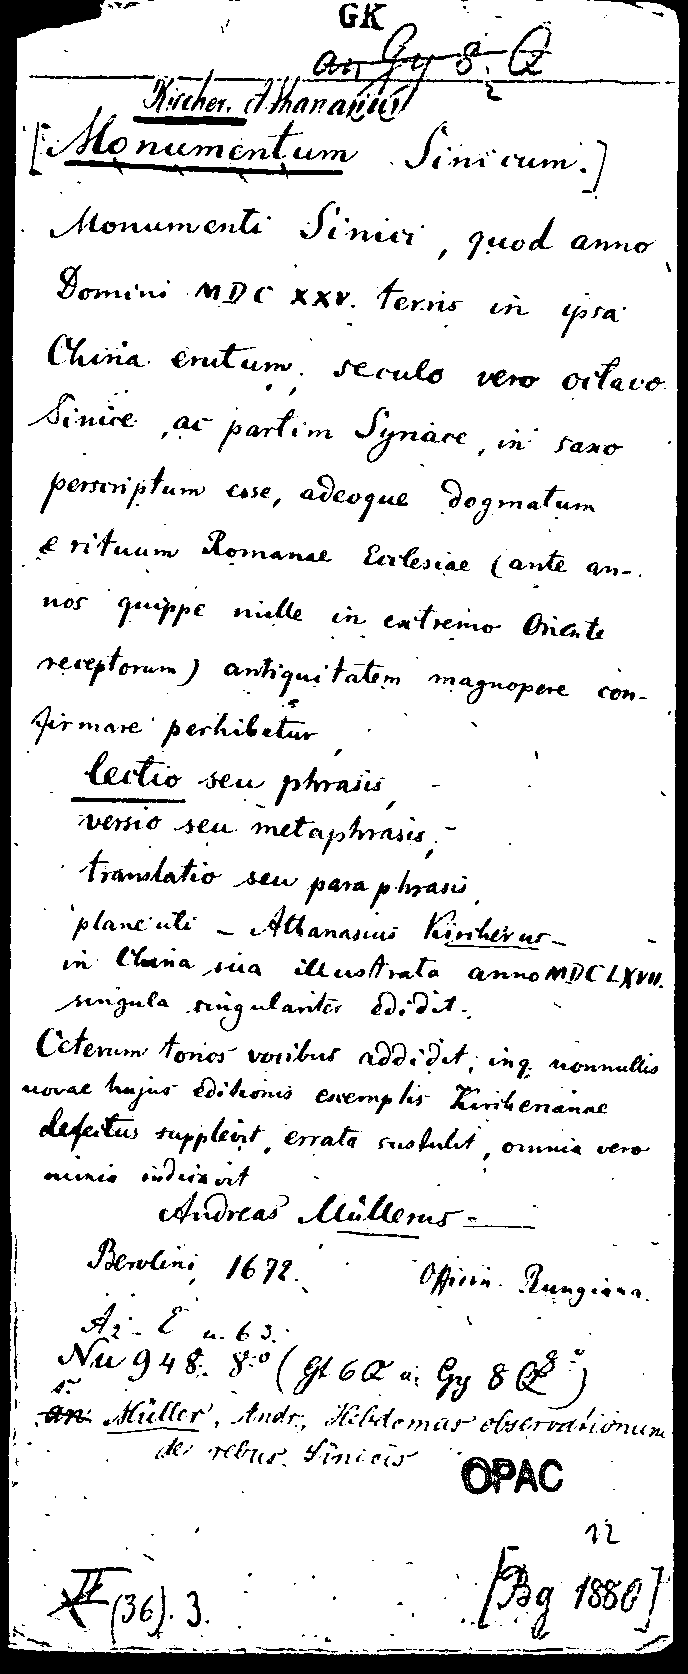 GK
an Gy 8: Q
Kircher. Athanasius
[Monumentum Sinicum.]
Monumenti Sinici, quod anno
Domini MDC XXV. terris in ipsa
China erutum; seculo vero octavo
Sinice, ac partim Syriace, in saxo
perscriptum esse, adeoque dogmatum
et rituum Romanae Ecclesiae (ante an-
nos quippe mille in extremo Oriente
receptorum) antiquitatem magnopere con-
firmare perhibetur,
lectio seu phrasis,
versio seu metaphrasis,
translatio seu paraphrasis,
plane uti - Athanasius Kircherus -
in China sua illustrata anno MDCLXVII.
singula singulariter edidit.
Ceterum tonos vocibus addidit, inq. nonnullis
novae hujus editionis exemplis Kircherianae
defectus supplevit, errata sustulit, omnia vero
minio indicavit
Andreas Müllerus -
Berolini, 1672. Officin. Rungiana.
A2 - E u. 63.
Nu 948. 8.º (Gt 6 Q u. Gy 8 Q)
an Müller, Andr., Hebdomas observationum
de rebus Sinicis
OPAC
12
(36). 3. [Bg 1880]